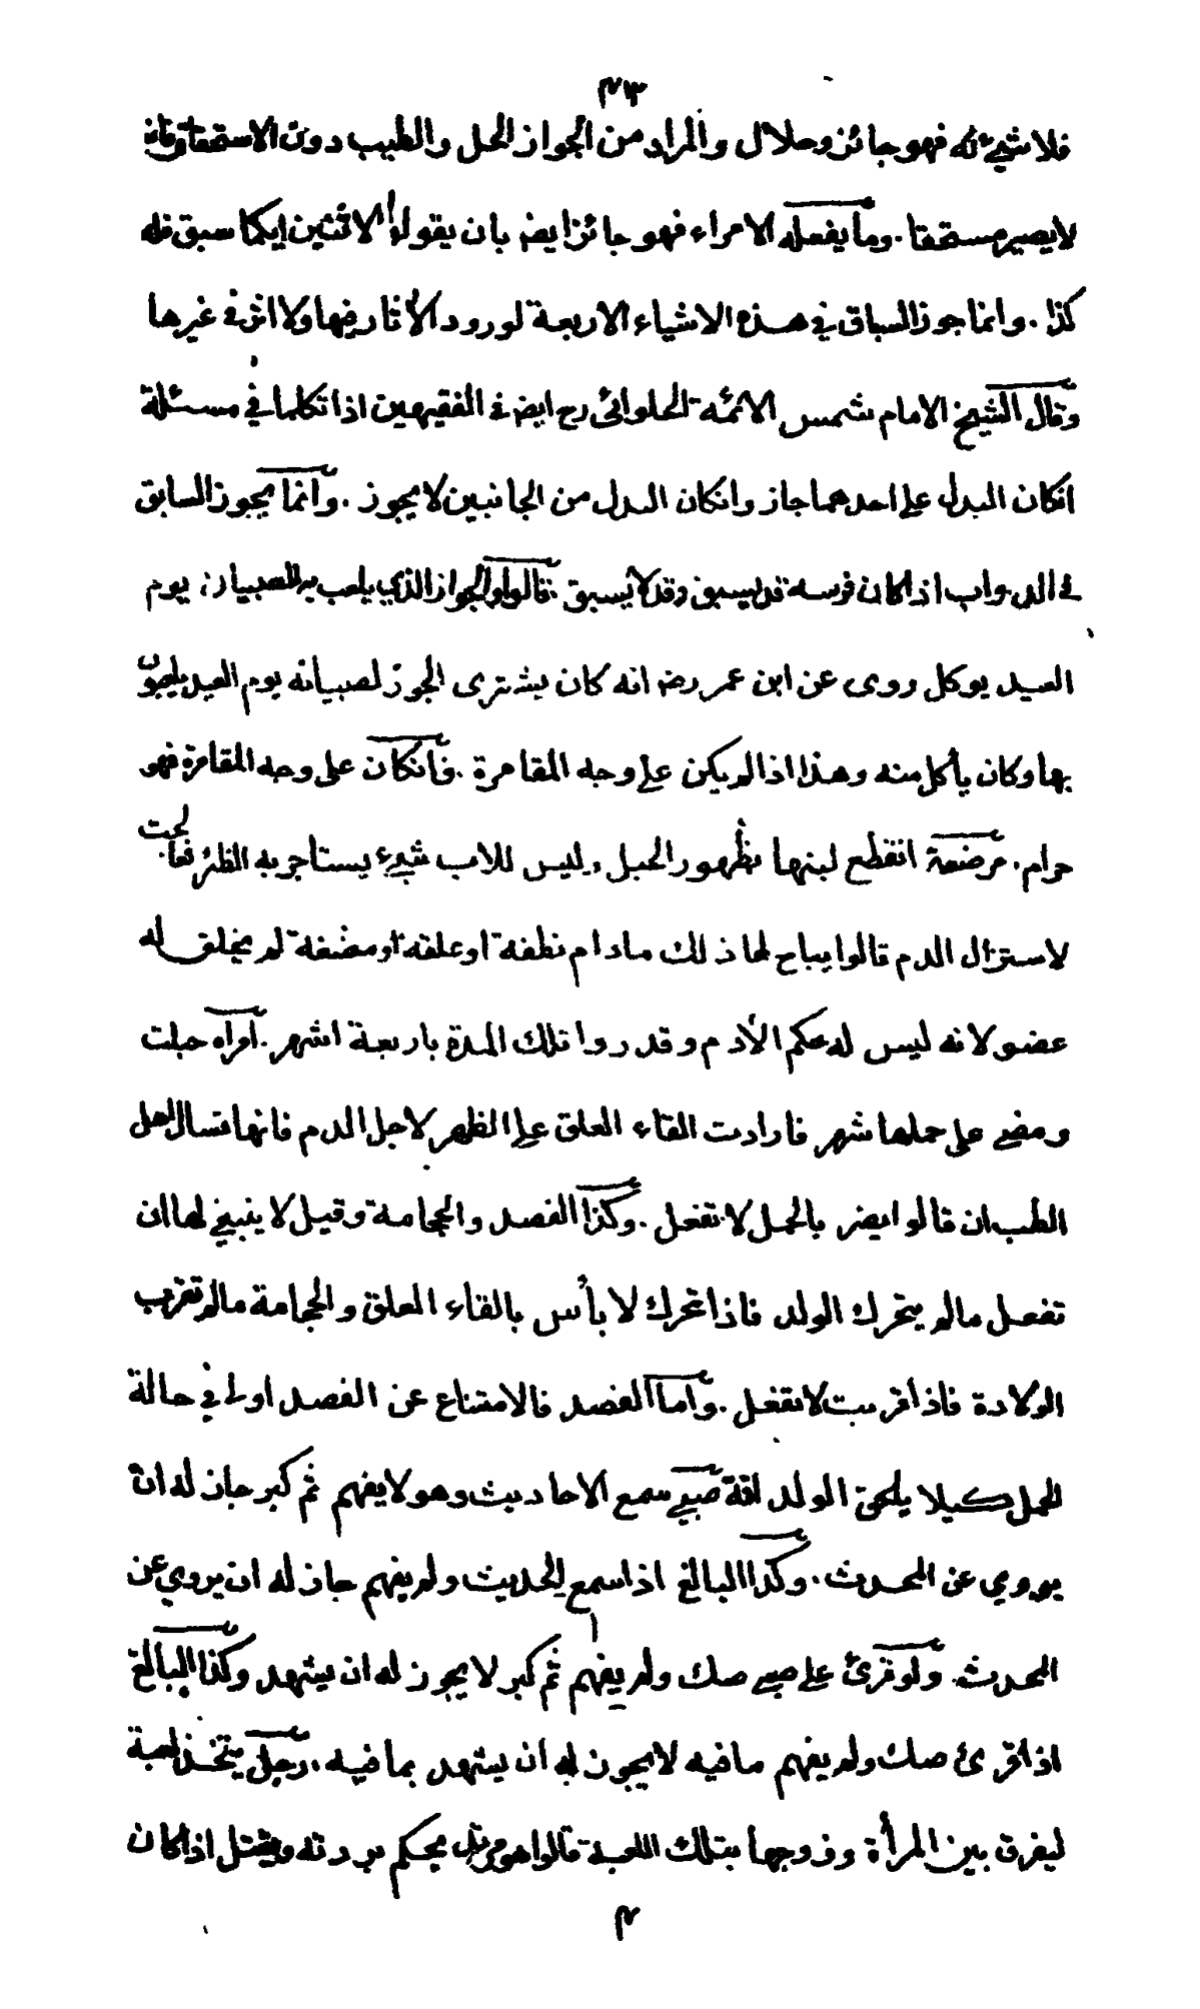 ٢٣
فلا شيء له فهو جائز وحلال والمراد من الجواز الحل والطيب دون الاستحقاق فانه
لا يصير مستحقا . وما يفعله الامراء فهو جائز ايضا بان يقولوا لاثنين ايكما سبق فله
كذا . وانما جوز السباق في هذه الاشياء الاربعة لورود الأثار فيها ولا اثر في غيرها
وقال الشيخ الامام شمس الائمة الحلوائى رح ايضا في الفقيهين اذا تكلما في مسئلة
انكان البدل على احدهما جاز وانكان البدل من الجانبين لا يجوز . وانما يجوز السابق
في الدواب اذا كان فرسه قد يسبق وقد لا يسبق . قالوا والجواز الذي يلعب به الصبيان يوم
العيد يوكل روى عن ابن عمر رضه انه كان يشترى الجوز لصبيانه يوم العيد يلعبون
بها وكان يأكل منه وهذا اذا لم يكن على وجه المقامرة . فانكان على وجه المقامرة فهو
حرام . مرضعة انقطع لبنها بظهور الحبل وليس للاب شيء يستاجر به الظئر فعالجت
لاستنزال الدم قالوا يباح لها ذلك مادام نطفة او علقة او مضغة لم يخلق له
عضو لانه ليس له حكم الأدم وقدروا تلك المدة باربعة اشهر . امرأه حبلت
ومضى على حملها شهر فارادت القاء العلق على الظهر لاجل الدم فانها تسال اهل
الطب ان قالوا يضر بالحمل لا تفعل . وكذا الفصد والحجامة وقيل لا ينبغي لها ان
تفعل مالم يتحرك الولد فاذا تحرك لا بأس بالقاء العلق والحجامة مالم تقرب
الولادة فاذا قربت لا تفعل . واما الفصد فالامتناع عن الفصد اولى في حالة
الحمل كيلا يلحق الولد افة صبي سمع الاحاديث وهو لا يفهم ثم كبر جاز له ان
يروي عن المحدث . وكذا البالغ اذا سمع الحديث ولم يفهم جاز له ان يروي عن
المحدث . ولو قرئ على صبي صك ولم يفهم ثم كبر لا يجوز له ان يشهد وكذا البالغ
اذا قرئ صك ولم يفهم ما فيه لا يجوز له ان يشهد بما فيه . رجل يتخذ لعبة
ليفرق بين المرأة وزوجها بتلك اللعبة قالوا هو مرتد يحكم بردته ويقتل اذا كان